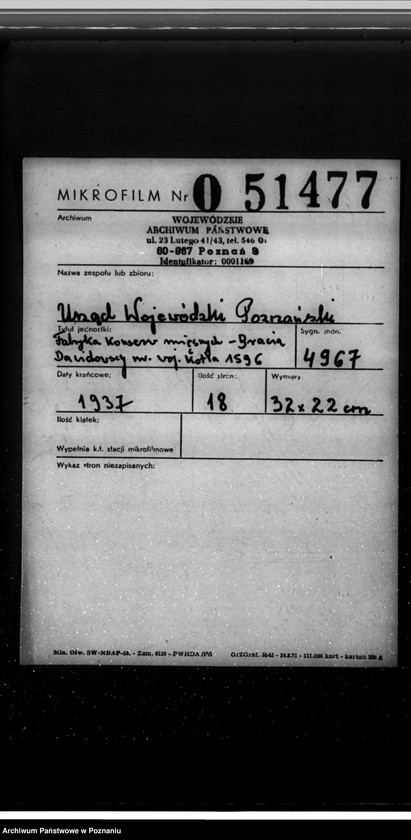 MIKROFILM Nr O 51477
Archiwum
WOJEWÓDZKIE
ARCHIWUM PAŃSTWOWE
ul. 23 Lutego 41/43, tel. 546 0
60-967 Poznań 9
Identyfikator: 0001169
Nazwa zespołu lub zbioru:
Urząd Wojewódzki Poznański
Tytuł jednostki:
Sygn. jedn.
Fabryka Konserw mięsnych - Bracia
Dawidowscy nr. woj. 1596
4967
Daty krańcowe:
Ilość stron:
Wymiary
1937
18
32 x 22 cm
Ilość klatek:
Wypełnia k.t. stacji mikrofilmowe
Wykaz stron niezapisanych:
Min. Ośw. SW-NDAP-50. - Zam. 6120 - PWHDA
GrZGraf. - 24.8.71 - 111.000 kart - karton 220 g
Archiwum Państwowe w Poznaniu